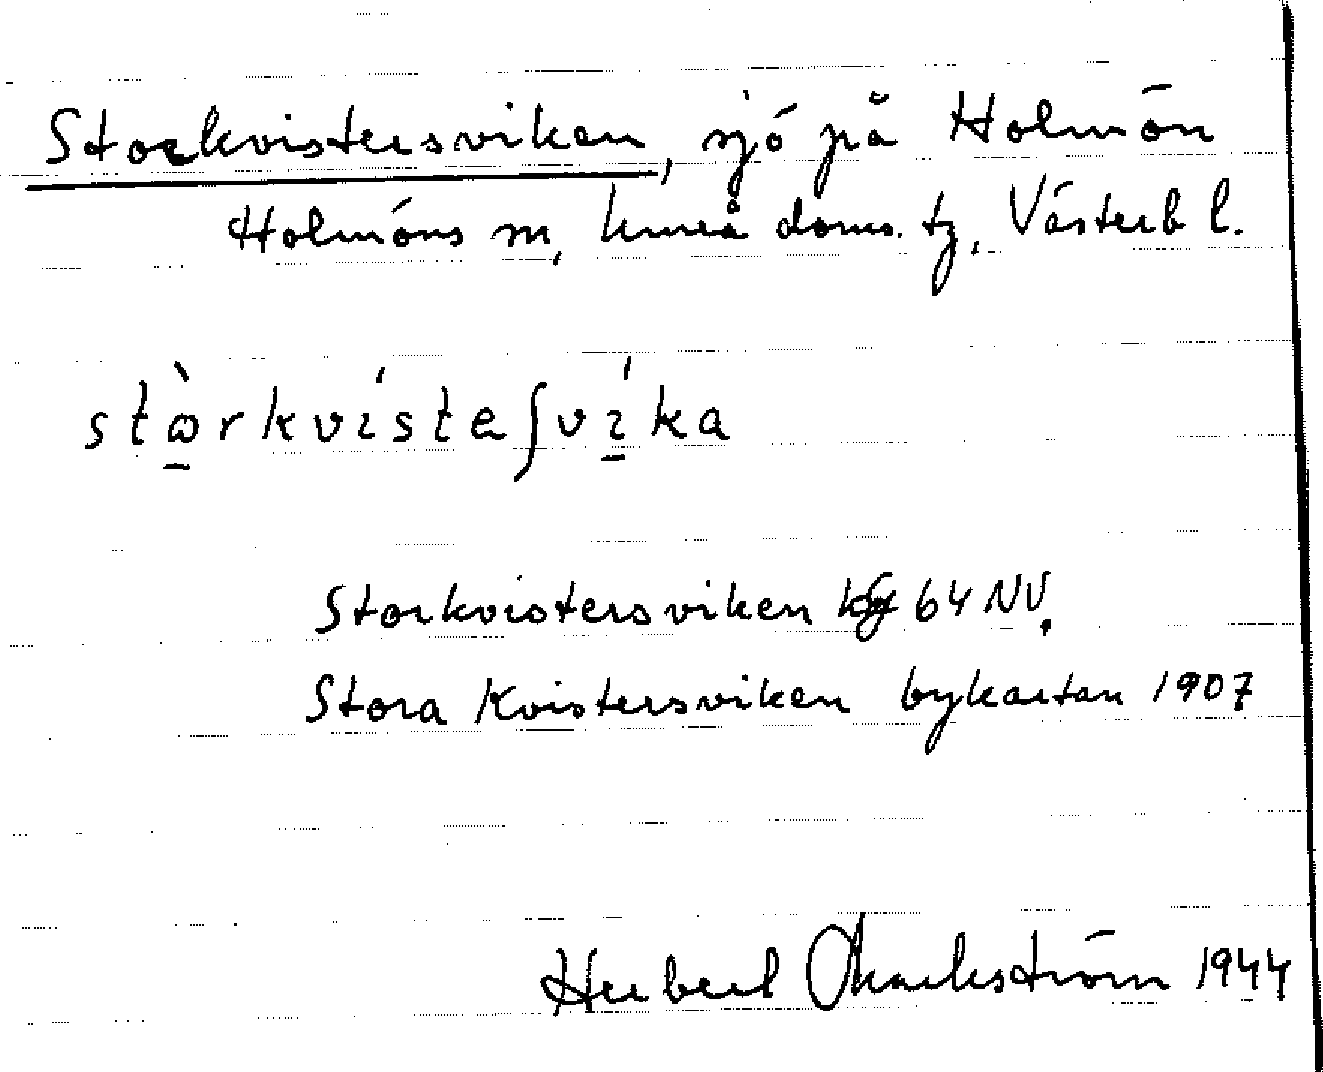 Storkvistersviken, sjö på Holmön
Holmöns sn, Umeå doms. tg, Västerb l.
stɷ̀rkvı́steʃvı́ka
Storkvistersviken 64 NV.
Stora Kvistersviken bykartan 1907
Herbert Markström 1944